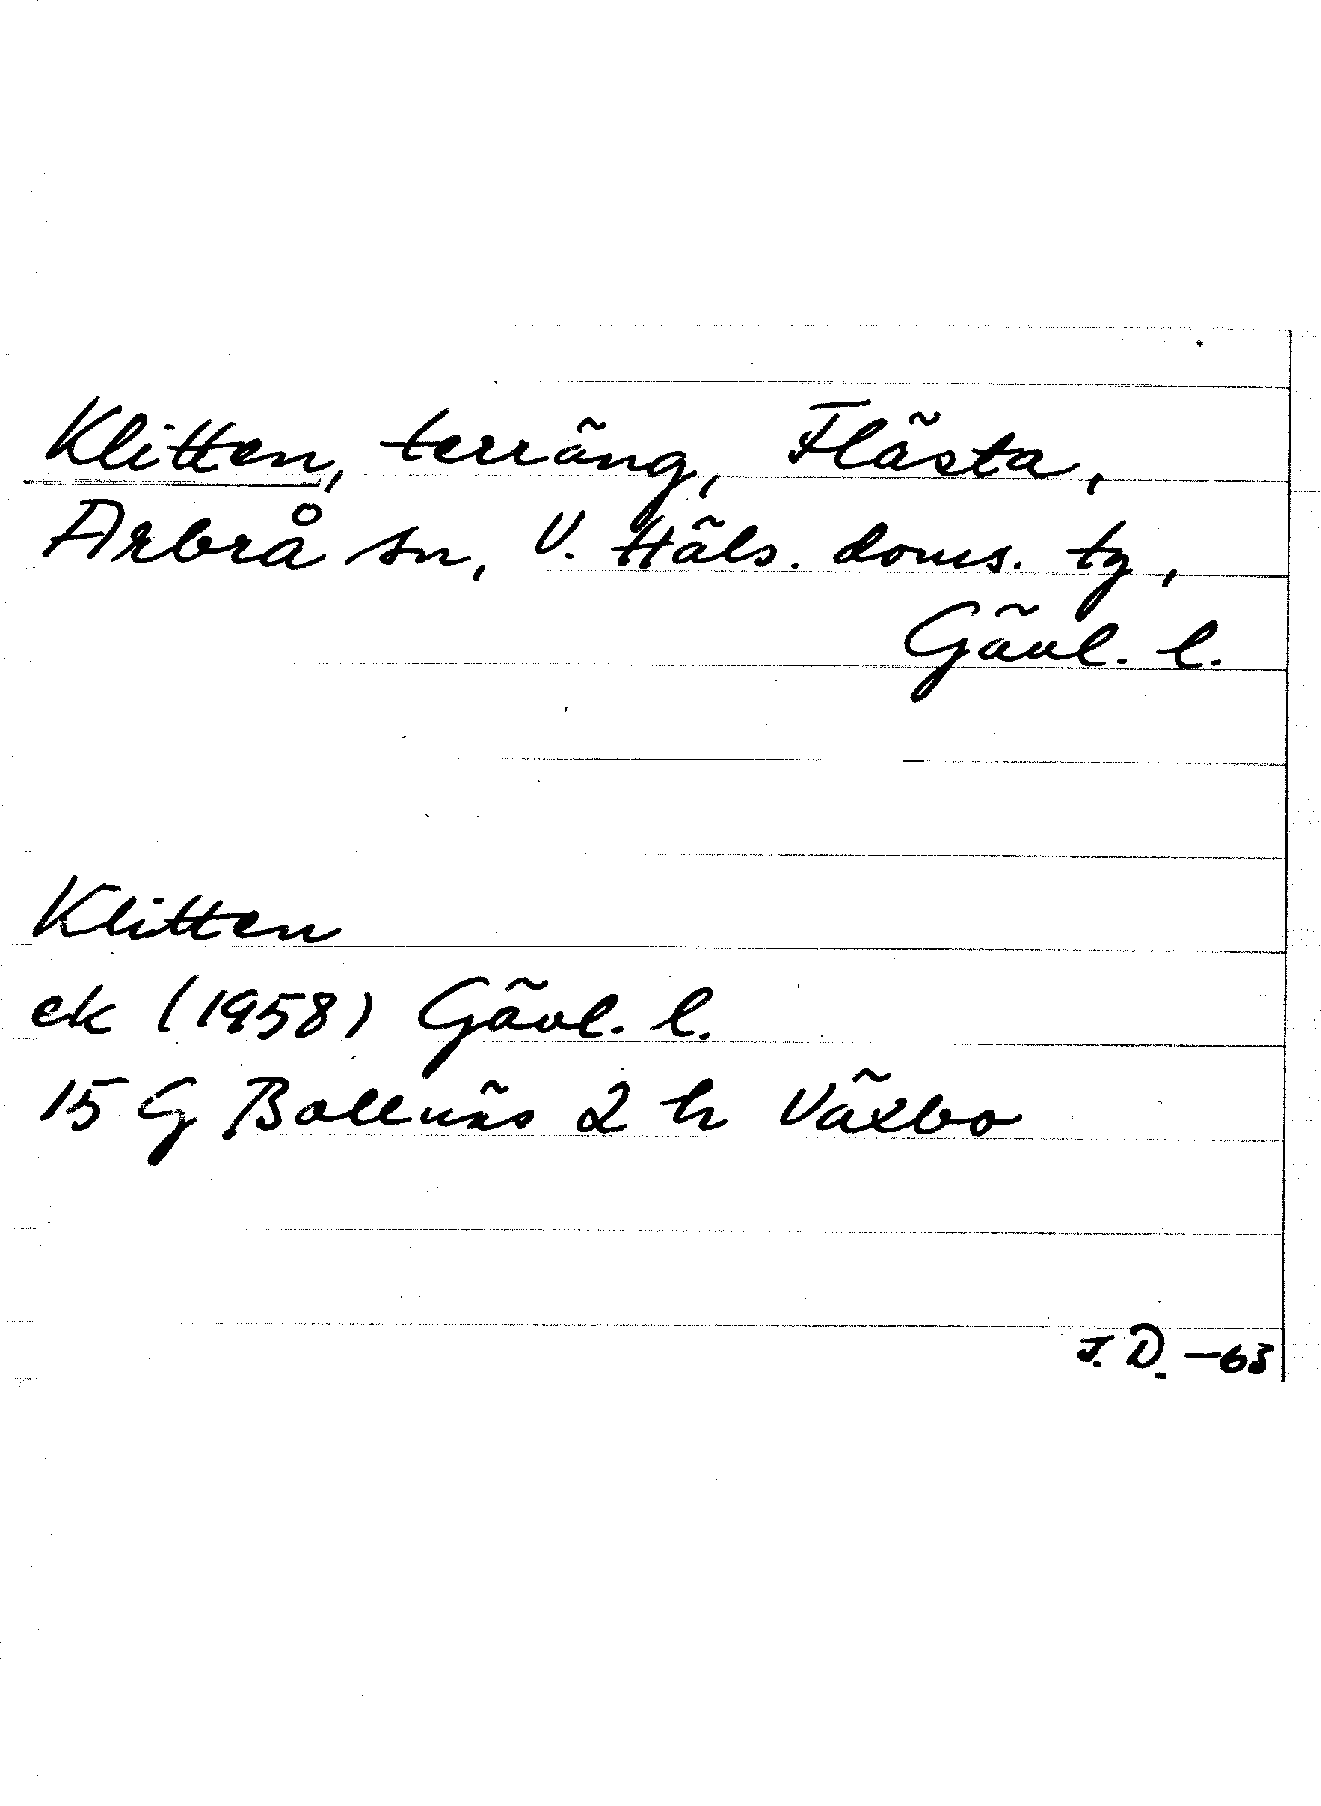 Klitten, terräng, Flästa,
Arbrå sn, V. Häls. doms. tg,
Gävl. l.
Klitten
ek (1958) Gävl. l.
15 G Bollnäs 2 h Växbo
J. D. -63